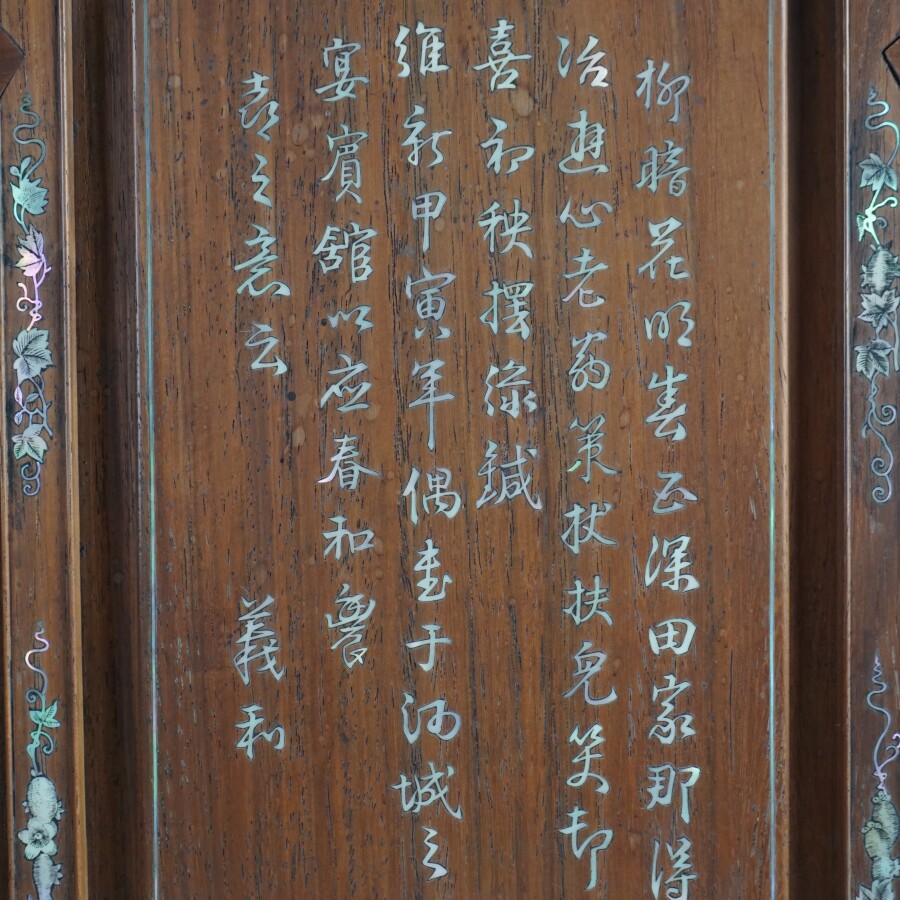 柳暗花明春正深田家那得
冶遊心老翁策杖扶兒笑却
喜初秧擺綠鍼
維新甲寅年偶書于河城之
宴賓舘以应春和農
袁之意云
義和